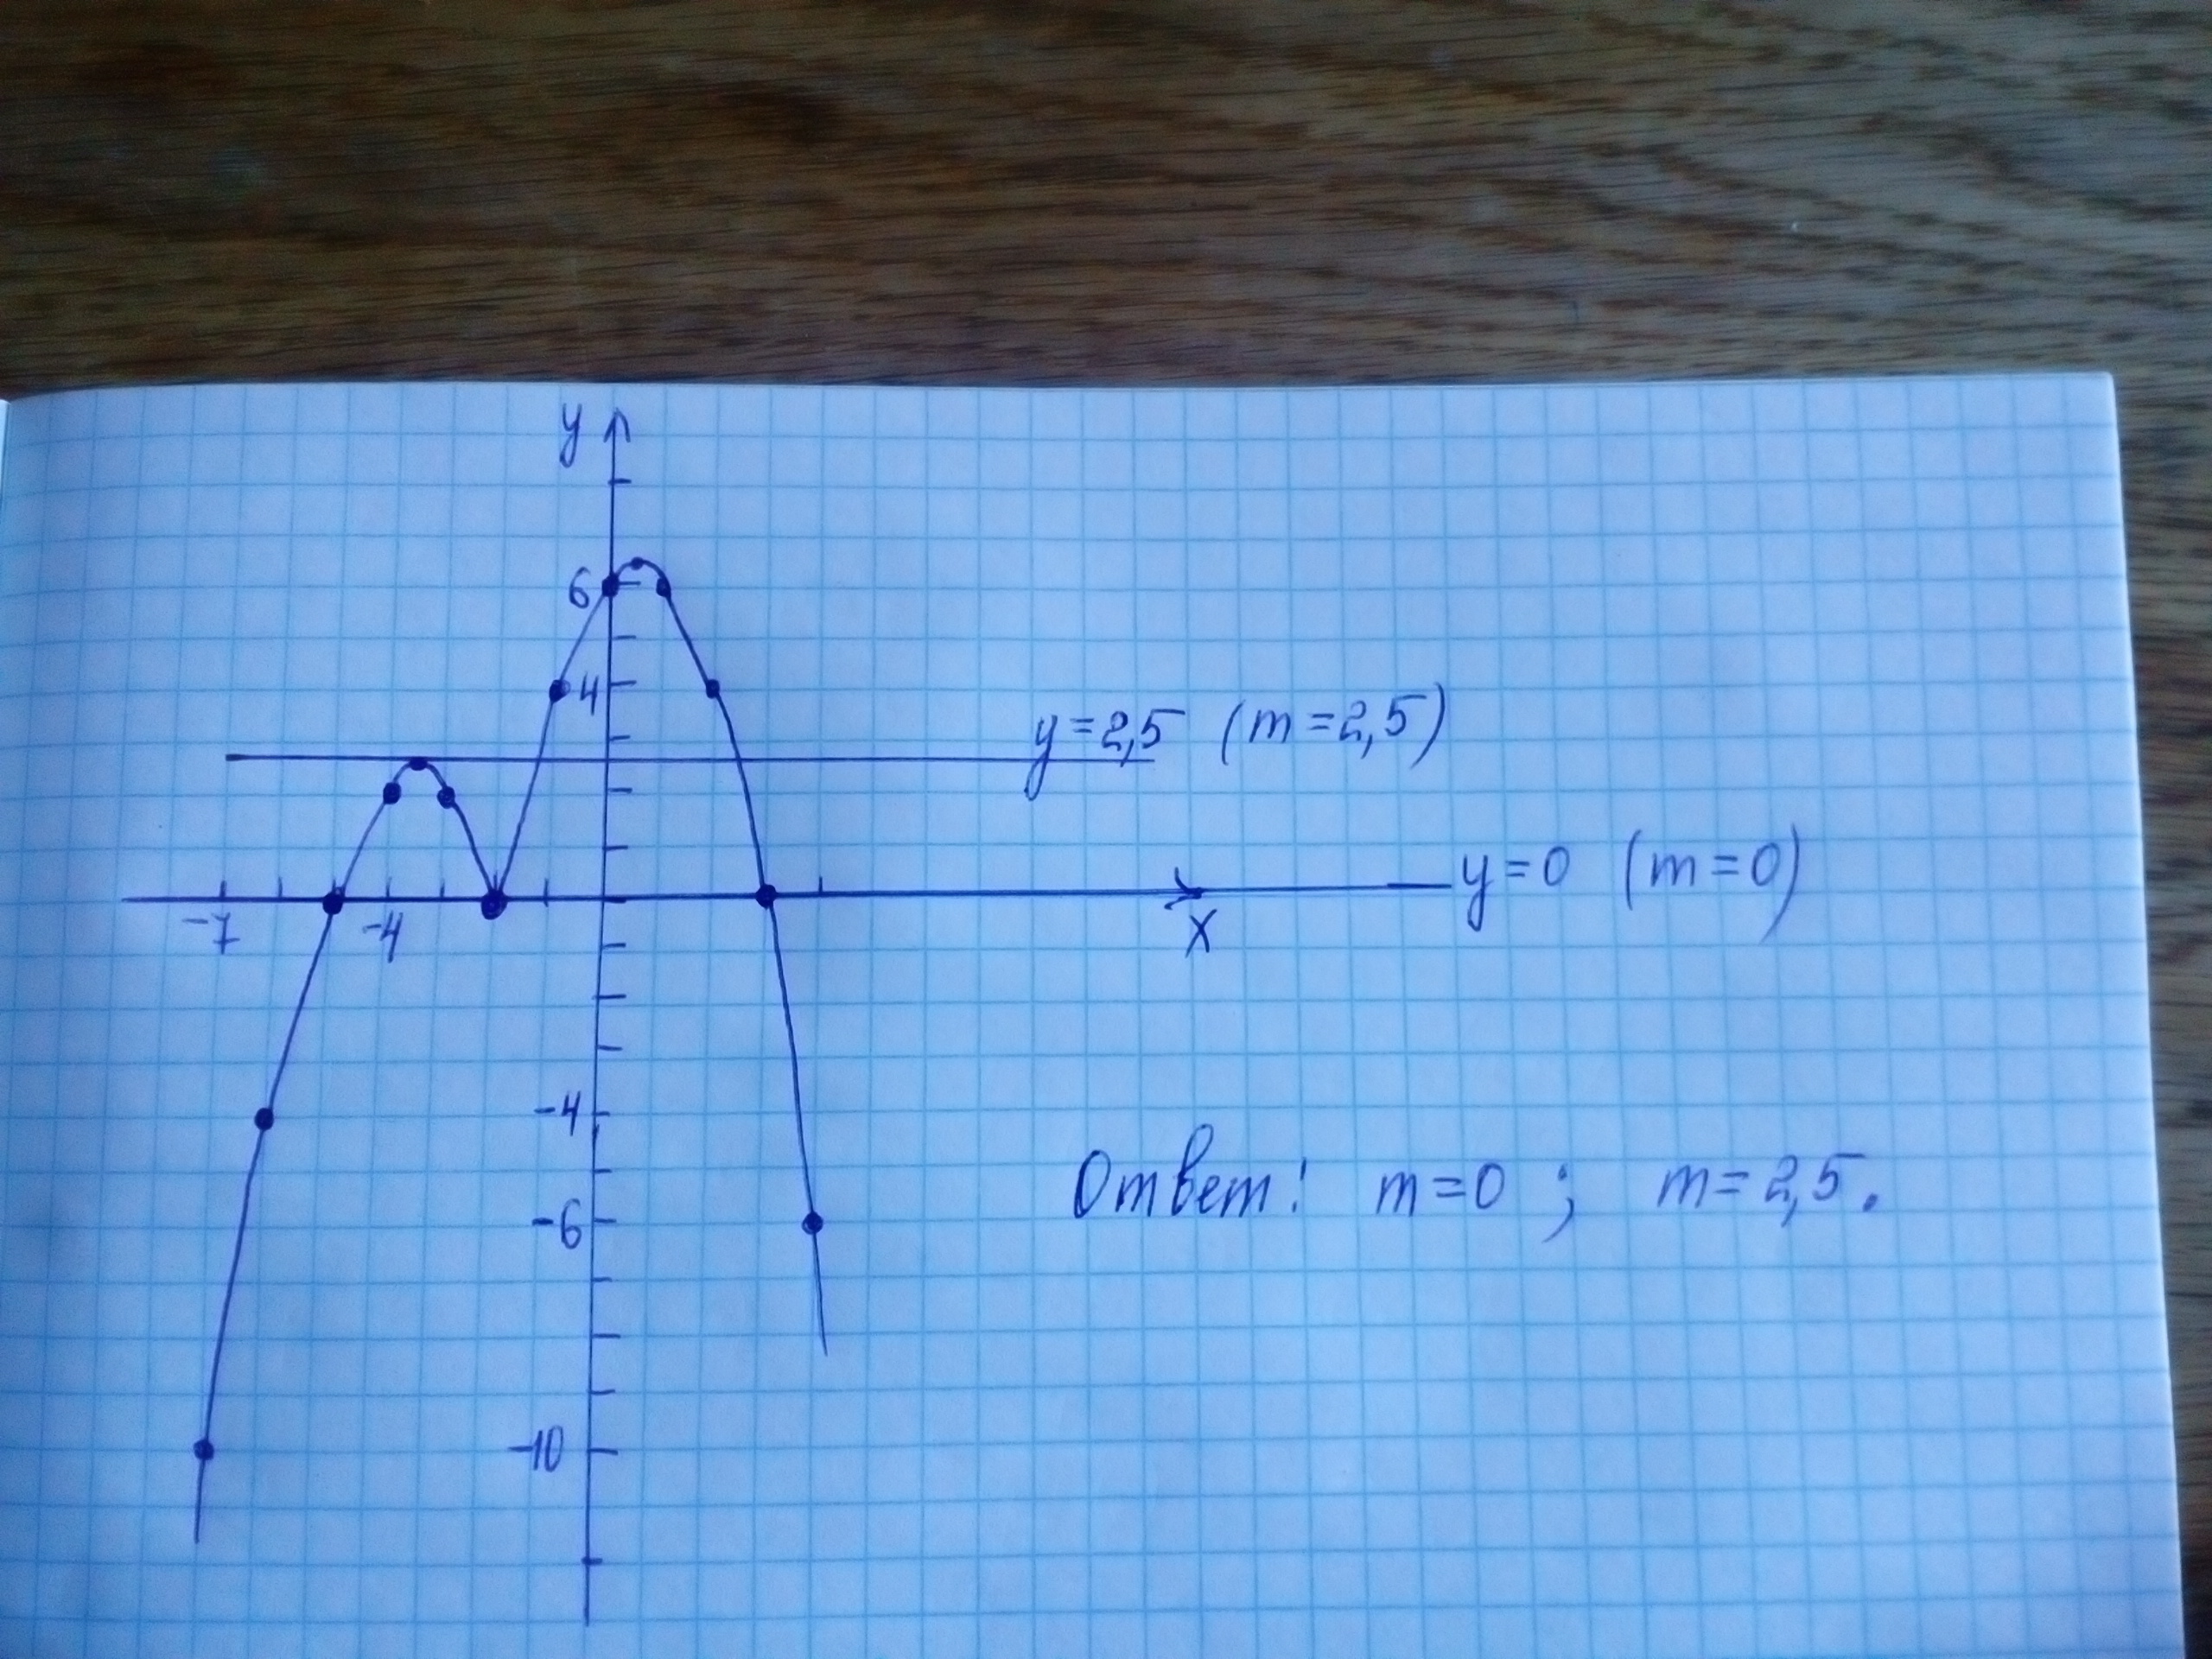 y
6
4
y=2,5 (m=2,5)
y=0 (m=0)
-7
-4
x
-4
Ответ: m=0 ; m=2,5.
-6
-10